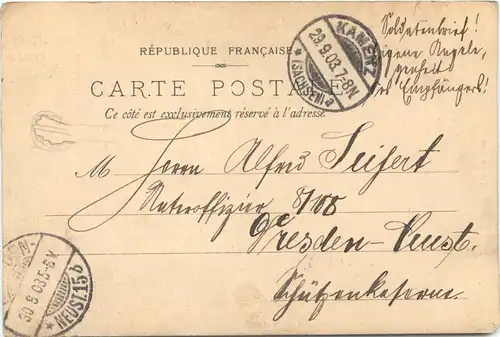 RÉPUBLIQUE FRANÇAISE
CARTE POSTALE
Ce côté est exclusivement réservé à l'adresse.
KAMENZ
29.9.03.7-8N
* (SACHSEN) a
Soldatenbrief!
eigene Angele
des Empfängers!
M Herrn Alfred Seifert
Unteroffizier 8/108
Dresden-Neust.
Schützenkaserne.
30.9.03.5-6V
* NEUST. 15 b